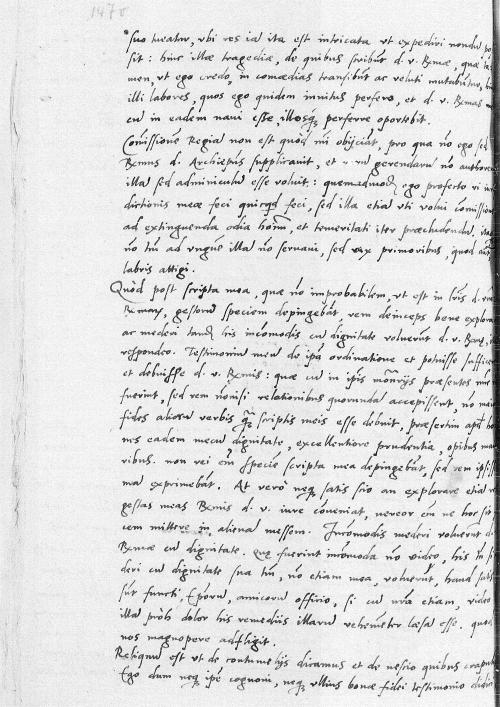 1470
suo tueatur, vbi res ia ita est intricata vt expediri nondu
sit: hinc illæ tragediæ, de quibus scribut d. v. Rmæ, quæ
men, vt ego credo, in comœdias transibut ac veluti mutabutur,
illi labores, quos ego quidem inuitus perfero, et d. v. Rmas
cu in eadem naui esse, illosq perferre oportebit.
Comissione Regia non est quòd mi obijciat, pro qua no ego sed
Rmus d. Archiepus supplicauit, et gerendaru no authore
illa sed adminiculu esse voluit: quemadmodu ego profecto vi
dictionis meæ feci quicqd feci, sed illa etia vti volui comissione
ad extinguenda odia hoim, et temeritati iter præcludendu.
no tn ad vngue illa no seruaui, sed vix primoribus, quod
labris attigi.
Quòd post scripta mea, quæ no improbabilem, vt est in lris d.
Rmar, gestoru speciem depingebat, rem deinceps bene explora
ac mederi tand his incomodis cu dignitate voluerut d. v. Rmæ,
respondeo. Testimoniu meu de ipa ordinatione et potuisse suffice
et debuisse d. v. Rmis: quæ cu in ipis præsentes
fuerint, sed rem nonisi relationibus quorunda accepissent, no
fides aliaru verbis q scriptis meis esse debuit, præsertim apd
nes eadem mecu dignitate, excellentiore prudentia, opibus
ribus. non rei em specie scripta mea depingebat, sed rem ipsi
ma exprimebat. At verò neq satis scio an explorare etia
gestas meas Rmis d. v. iure coueniat, vereor em ne hoc sit
cem mittere in aliena messem. Incomodis mederi voluerut
Rmæ cu dignitate. Quæ fuerint incomoda no video, his tn
deri cu dignitate sua tm, no etiam mea, voluerut, haud satis
sut functi Eporu, amicoru officio, si cu vra etiam, video
illa pròh dolor his remediis illaru vehemeter læsa esse. quod
nos magnopere adfligit.
Reliquu est vt de contumelijs dicamus et de nescio quibus
Ego dum neq ipe cognoui, neq vllius bonæ fidei testimonio